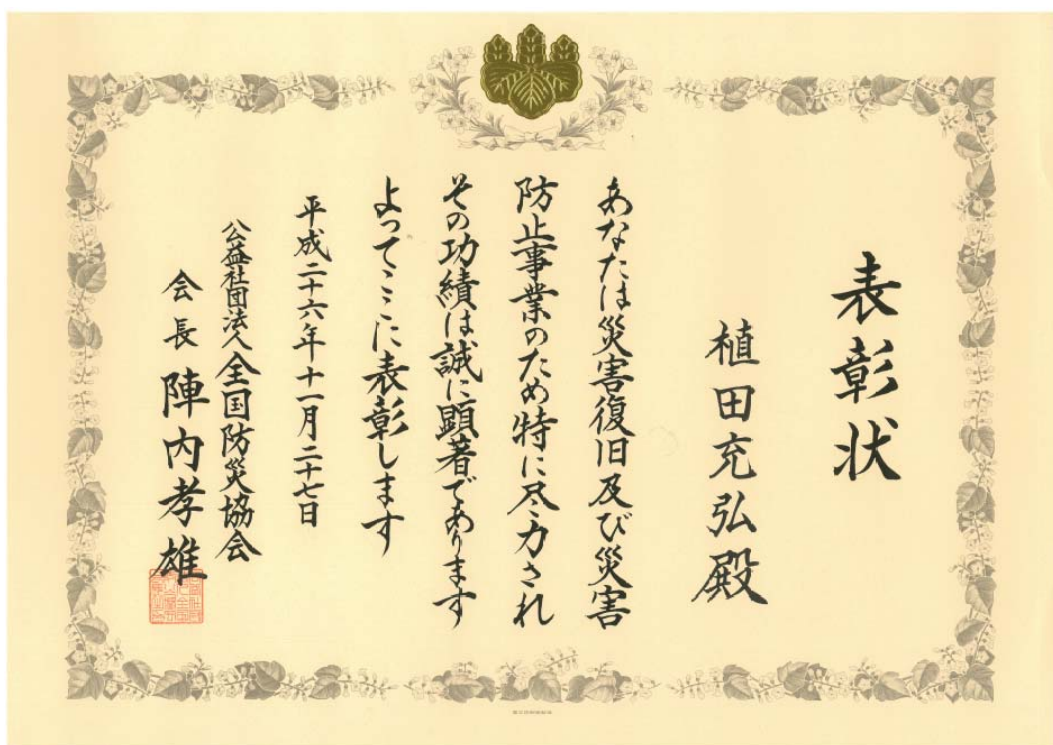 表彰状
植田充弘殿
あなたは災害復旧及び災害
防止事業のため特に尽力され
その功績は誠に顕著であります
よってここに表彰します
平成二十六年十一月二十七日
公益社団法人全国防災協会
会長 陣内孝雄